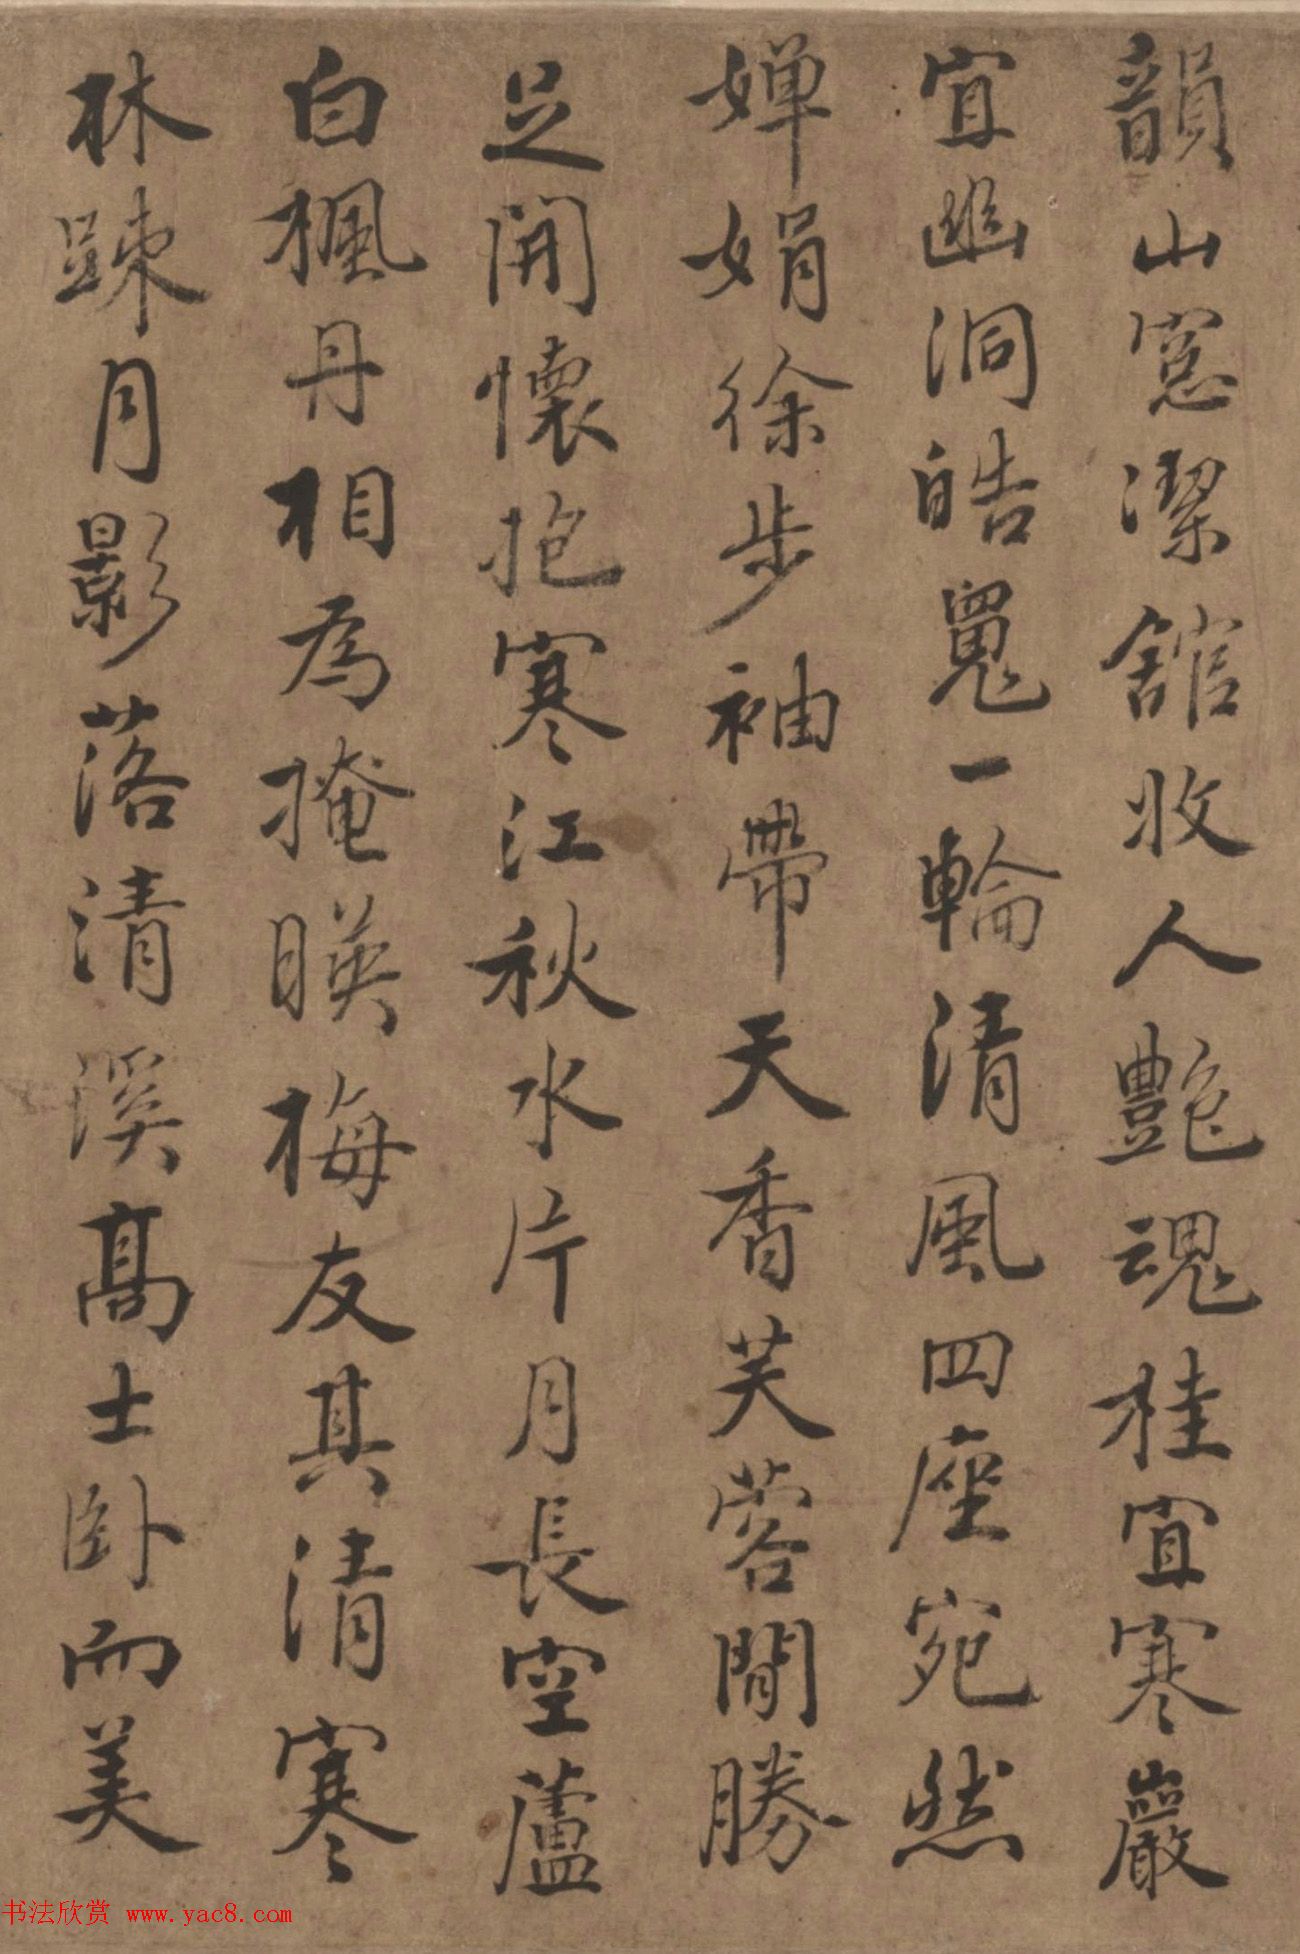 韻山窓潔舘收人艷魂桂宜寒巖
宜幽洞皓魄一輪清風四座宛然
嬋娟徐步袖帶天香芙蓉閒勝
足開懷抱寒江秋水片月長空蘆
白楓丹相為掩暎梅友其清寒
林踈月影落清溪高士卧而美
书法欣赏 www.yac8.com